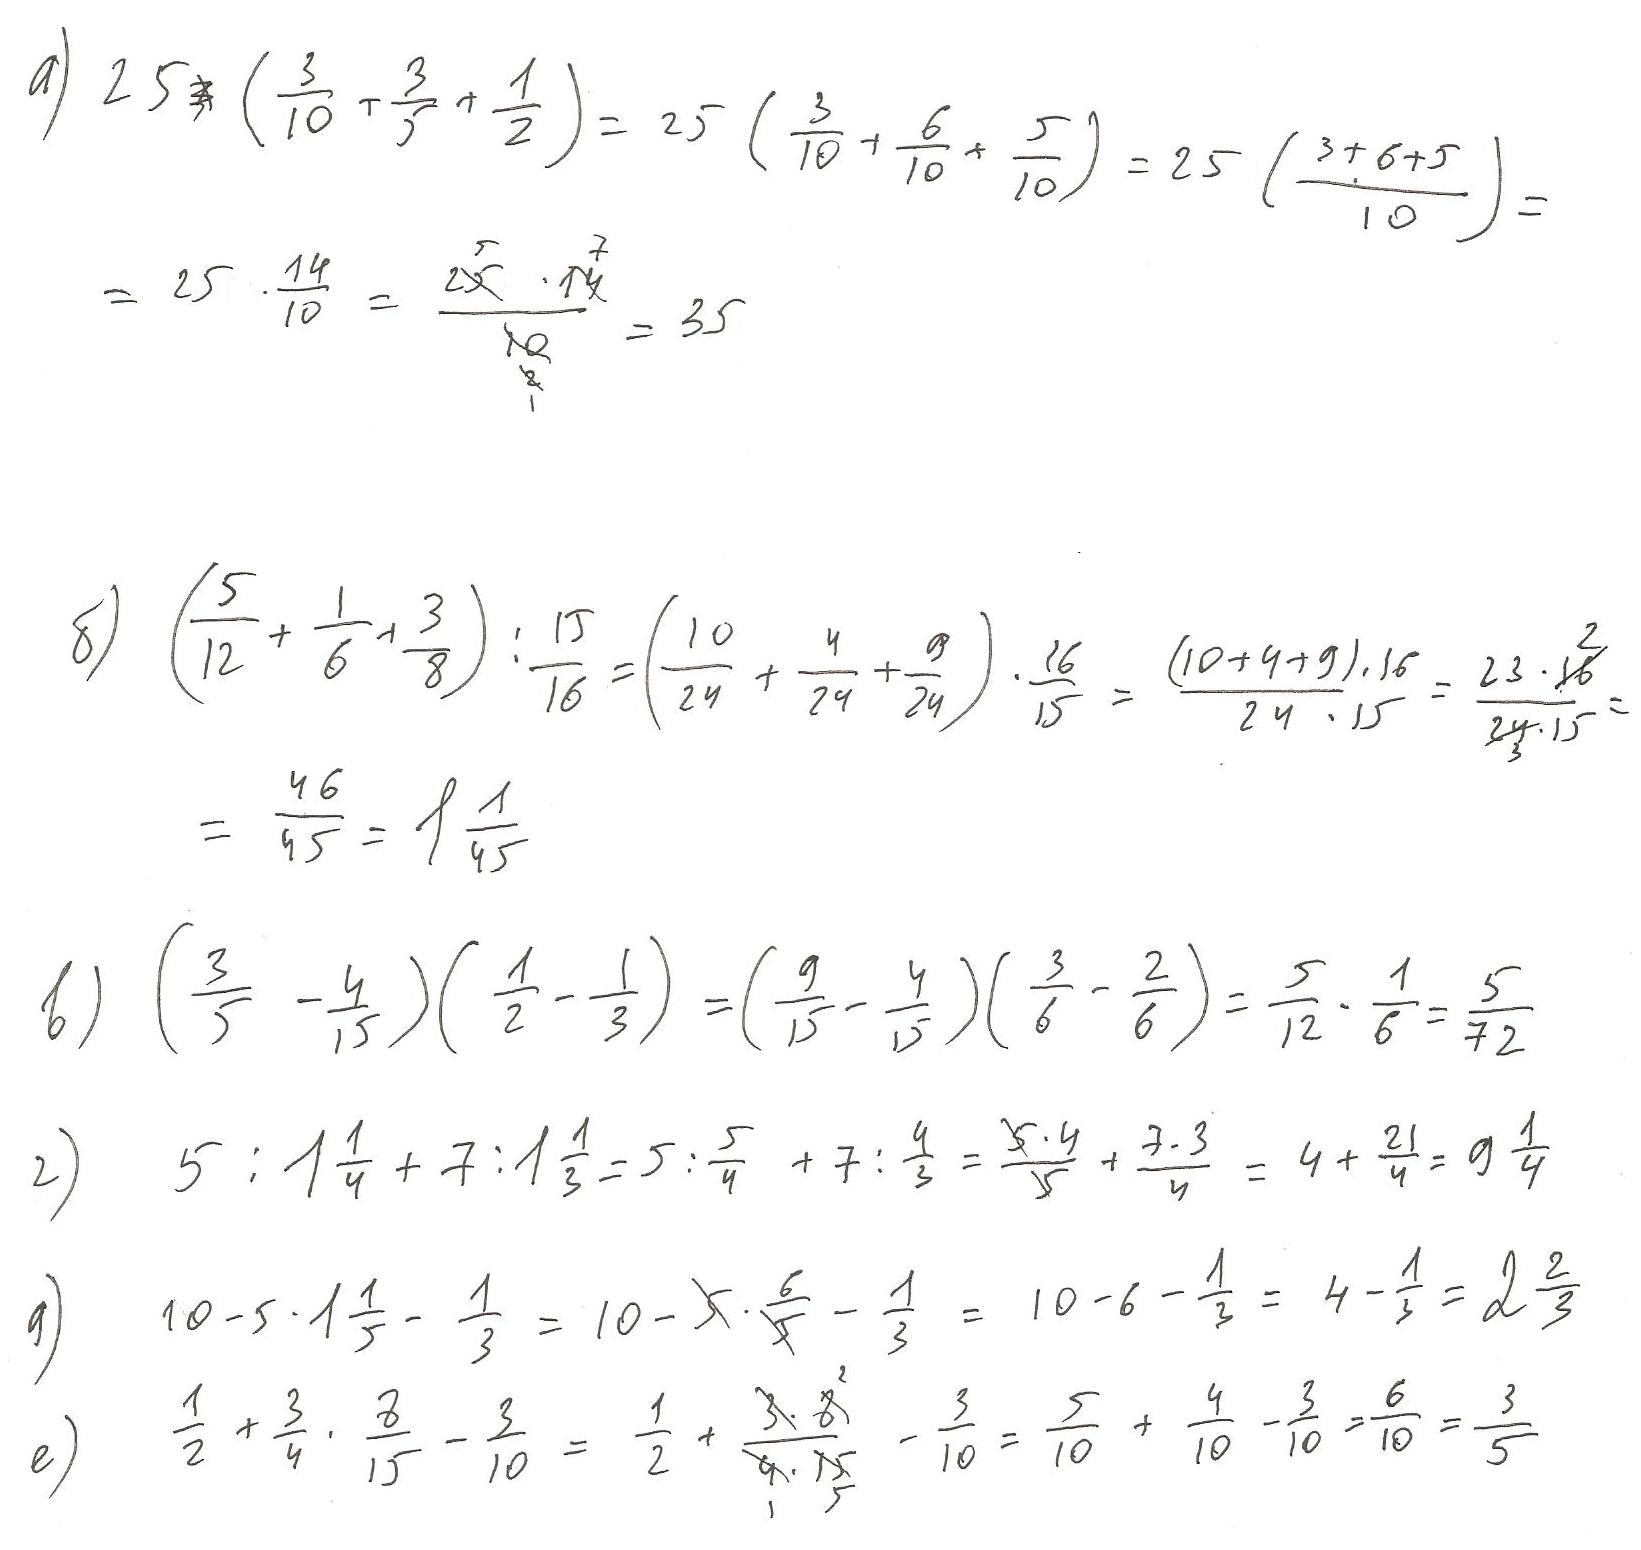 а) 25 * (3/10 + 3/5 + 1/2) = 25 (3/10 + 6/10 + 5/10) = 25 ((3+6+5)/10) =
= 25 · 14/10 = (25 · 14)/10 = 35
б) (5/12 + 1/6 + 3/8) : 15/16 = (10/24 + 4/24 + 9/24) · 16/15 = ((10+4+9)·16)/(24·15) = (23·16)/(24·15) =
= 46/45 = 1 1/45
в) (3/5 - 4/15)(1/2 - 1/3) = (9/15 - 4/15)(3/6 - 2/6) = 5/12 · 1/6 = 5/72
г) 5 : 1 1/4 + 7 : 1 1/3 = 5 : 5/4 + 7 : 4/3 = (5·4)/5 + (7·3)/4 = 4 + 21/4 = 9 1/4
д) 10 - 5 · 1 1/5 - 1/3 = 10 - 5 · 6/5 - 1/3 = 10 - 6 - 1/3 = 4 - 1/3 = 2 2/3
е) 1/2 + 3/4 · 8/15 - 3/10 = 1/2 + (3·8)/(4·15) - 3/10 = 5/10 + 4/10 - 3/10 = 6/10 = 3/5